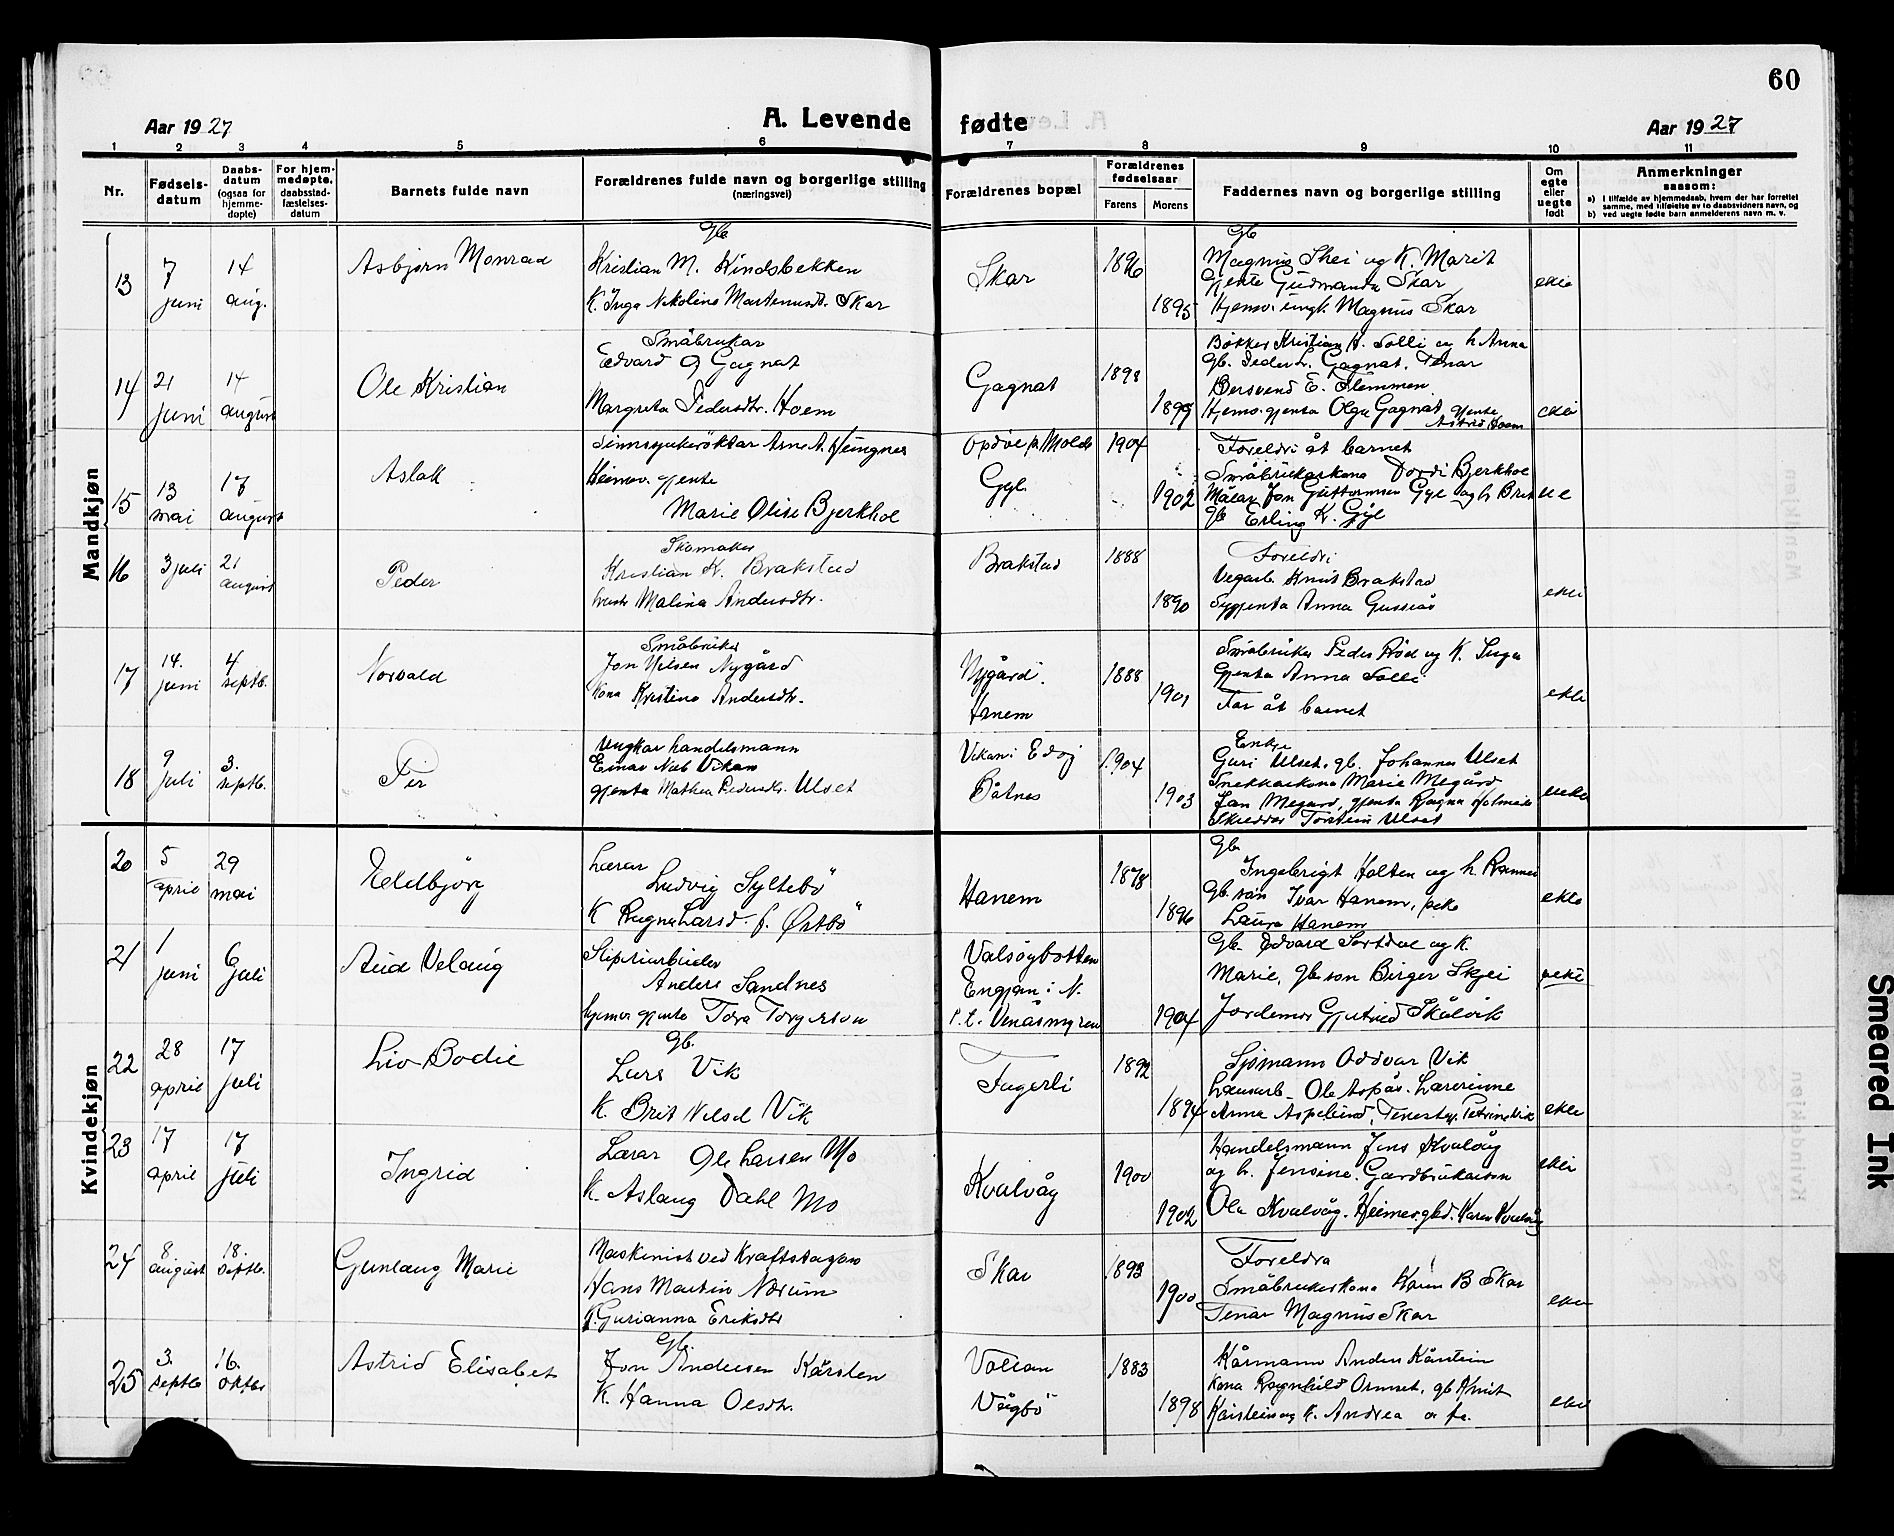 60
Aar 1927
A. Levende fødte
Aar 1927
1 2 3 4 5 6 7 8 9 10 11
Nr.
Fødsels-datum
Daabs-datum (ogsaa for hjemme-døpte)
For hjem-medøpte. daabsstad-fæstelses-datum
Barnets fulde navn
Forældrenes fulde navn og borgerlige stilling (næringsvei)
Forældrenes bopæl
Forældrenes fødselsaar
Farens
Morens
Faddernes navn og borgerlige stilling
Om egte eller uegte født
Anmerkninger saasom:
a) I tilfælde av hjemmedaab, hvem der har forrettet samme, med tilføielse av to daabsvidners navn, og
b) ved uegte fødte barn anmelderens navn m. v.
Mandkjøn
13 7 juni 14 aug. Asbjørn Monrad
Gb.
Kristian M. Kindsbekken
K. Inga Nikoline Martenusdt. Skar
Skar 1896 1895
Gb
Magnus Skei og K. Marit
Gjente Gudmunda Skar
Hjemv. ungk. Magnus Skar
ekte
14 21 juni 14 august Ole Kristian
Småbrukar
Edvard O Gagnat
Margreta Pedersdtr. Hoem
Gagnat 1898 1899
Bøkker Kristian A. Solli og h Anna
Gb. Peder L. Gagnat. Tenar
Bersvend E. Flemmen
Hjemv. gjenta Olga Gagnat gjente
Astrid Hoem
ekte
15 13 mai 17 august Aslak
Sinnssjukerøktar Arne A. Heingnes
Heimev. gjente
Marie Olise Bjerkhol
Opdøl p. Molde
Gyl 1904 1902
Foreldri åt barnet
Småbrukarkona Dordi Bjerkhol
Målar Jon Guttormsen Gyl og h Brit
Gb Erling K. Gyl
ue
16 3 juli 21 august Peder
Skomaker
Kristian K. Brakstad
hustr Malina Andersdtr.
Brakstad 1888 1890
Foreldri
Vegarb. Knut Brakstad
Sygjenta Anna Gussiås
ekte
17 14. juni 4 septb. Norvald
Småbruker
Jon Nilsen Nygård
Kona Kristine Andersdtr.
Nygård i
Hanem 1888 1901
Småbruker Peder Hød og K. Inga
Gjenta Anna Solli
Far åt barnet
ekte
18 9 juli 3. septb. Per
Ungkar handelsmann
Einar Vikan
gjenta Mathea Pedersdtr. Ulset
Vikan i Edøy
Båtnes 1904 1903
Enke
Guri Ulset, gb. Johannes Ulset
Snekkarkona Marie Megård
Jan Megård, gjenta Ragna Holmeide
Skredder Torstein Ulset
uekte
Kvindekjøn
20 5 april 29 mai Eldbjørg
Lærar
Ludvig Syltebø
K Ragna Larsd. f. Østbø
Hanem 1878 1896
Gb.
Ingebrigt Holten og h Rannei
Gb. søn Ivar Hanem, frk
Laura Hanem
ekte
21 1 juni 6 juli Aud Velaug
Sliperiarbeider
Anders Sandnes
hjemv gjente Tora Torgerson
Valsøybotten
Engjan i N.
p.t. Venåsmyren 1904
Gb. Edvard Sortdal og K.
Marie, gb. søn Birger Skjei
Jordemor Gjertrud Skålvik
uekte
22 28 april 17 juli Liv Bodil
Gb.
Lars Vik
K. Brit Nilsd Vik
Fugerli 1892 1894
Sjømann Oddvar Vik
Lausarb. Ole Aspås. Lærerinne
Anna Aspelund, Tenestej. Petrine Vik
ekte
23 17 april 17 juli Ingrid
Lærar Ole Larsen Mo
K. Aslaug Dahl Mo
Kvalvåg 1900 1902
Handelsmann Jens Kvalvåg
og h. Jensine. Gardbrukarson
Ola Kvalvåg. Heimev. gbd. Karen Kvalvåg
ekte
24 8 august 18. septb. Gunlaug Marie
Maskinist ved Kraftstasjon
Hans Martin Nørum
K. Gurianna Eriksdtr
Skar 1893 1900
Foreldra
Småbrukerkona Karen B Skar
Tenar Magnus Skar
ekte
25 3. septb 16. oktbr Astrid Elisabet
Gb
Jon Andersen Kårsten
K. Hanna Olsdtr.
Vollan
Vågbø 1883 1898
Kårmann Anders Kårstein
Kona Ragnhild Ormset, gb Knut
Kårstein og K. Andrea
ekte
Smeared Ink